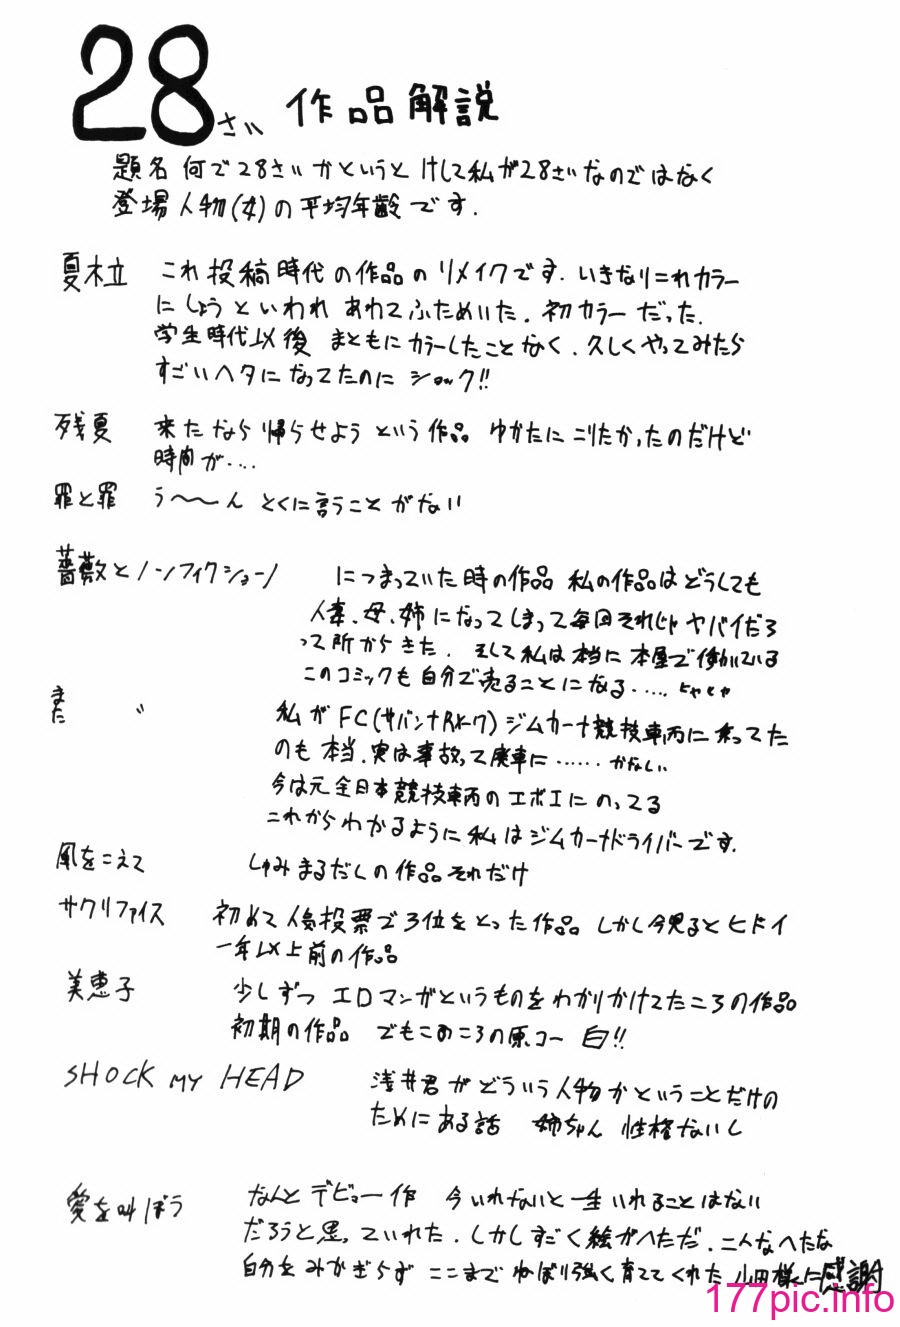 28さい 作品解説
題名 何で28さいかというと けして私が28さいなのではなく
登場人物(女)の平均年齢です.
夏木立 これ投稿時代の作品のリメイクです. いきなりこれカラー
にしようといわれ あわてふためいた. 初カラーだった.
学生時代以後 まともにカラーしたことなく. 久しくやってみたら
すごいヘタになってたのに ショック!!
残夏 来たなら帰らせようという作品 ゆかたにこりたかったのだけど
時間が‥‥
罪と罪 う〜〜ん とくに言うことがない
薔薇とノンフィクション につまっていた時の作品 私の作品はどうしても
人妻、母、姉になってしまって毎回それじゃヤバイだろ
って所からきた. そして私は本当に本屋で働いている
このコミックも自分で売ることになる‥‥‥
また 〃 私がFC(サバンナRX-7)ジムカーナ競技車両に乗ってた
のも本当. 実は事故って廃車に‥‥‥ かなしい
今は元全日本競技車両のエボIにのってる
これからわかるように私はジムカーナドライバーです.
風をこえて しゅみまるだしの作品それだけ
サクリファイス 初めて人気投票で3位をとった作品 しかし今見るとヒドイ
一年以上前の作品
美恵子 少しずつエロマンガというものをわかりかけてたころの作品
初期の作品 でもこのころの原コー 白!!
SHOCK MY HEAD 浅井君がどういう人物かということだけの
ためにある話 姉ちゃん 性格ないし
愛を叫ぼう なんとデビュー作 今いれないと一生いれることはない
だろうと思っていれた. しかしすごく絵がへただ. こんなへたな
自分をみかぎらず ここまでねばり強く育ててくれた 山田様に感謝
177pic.info